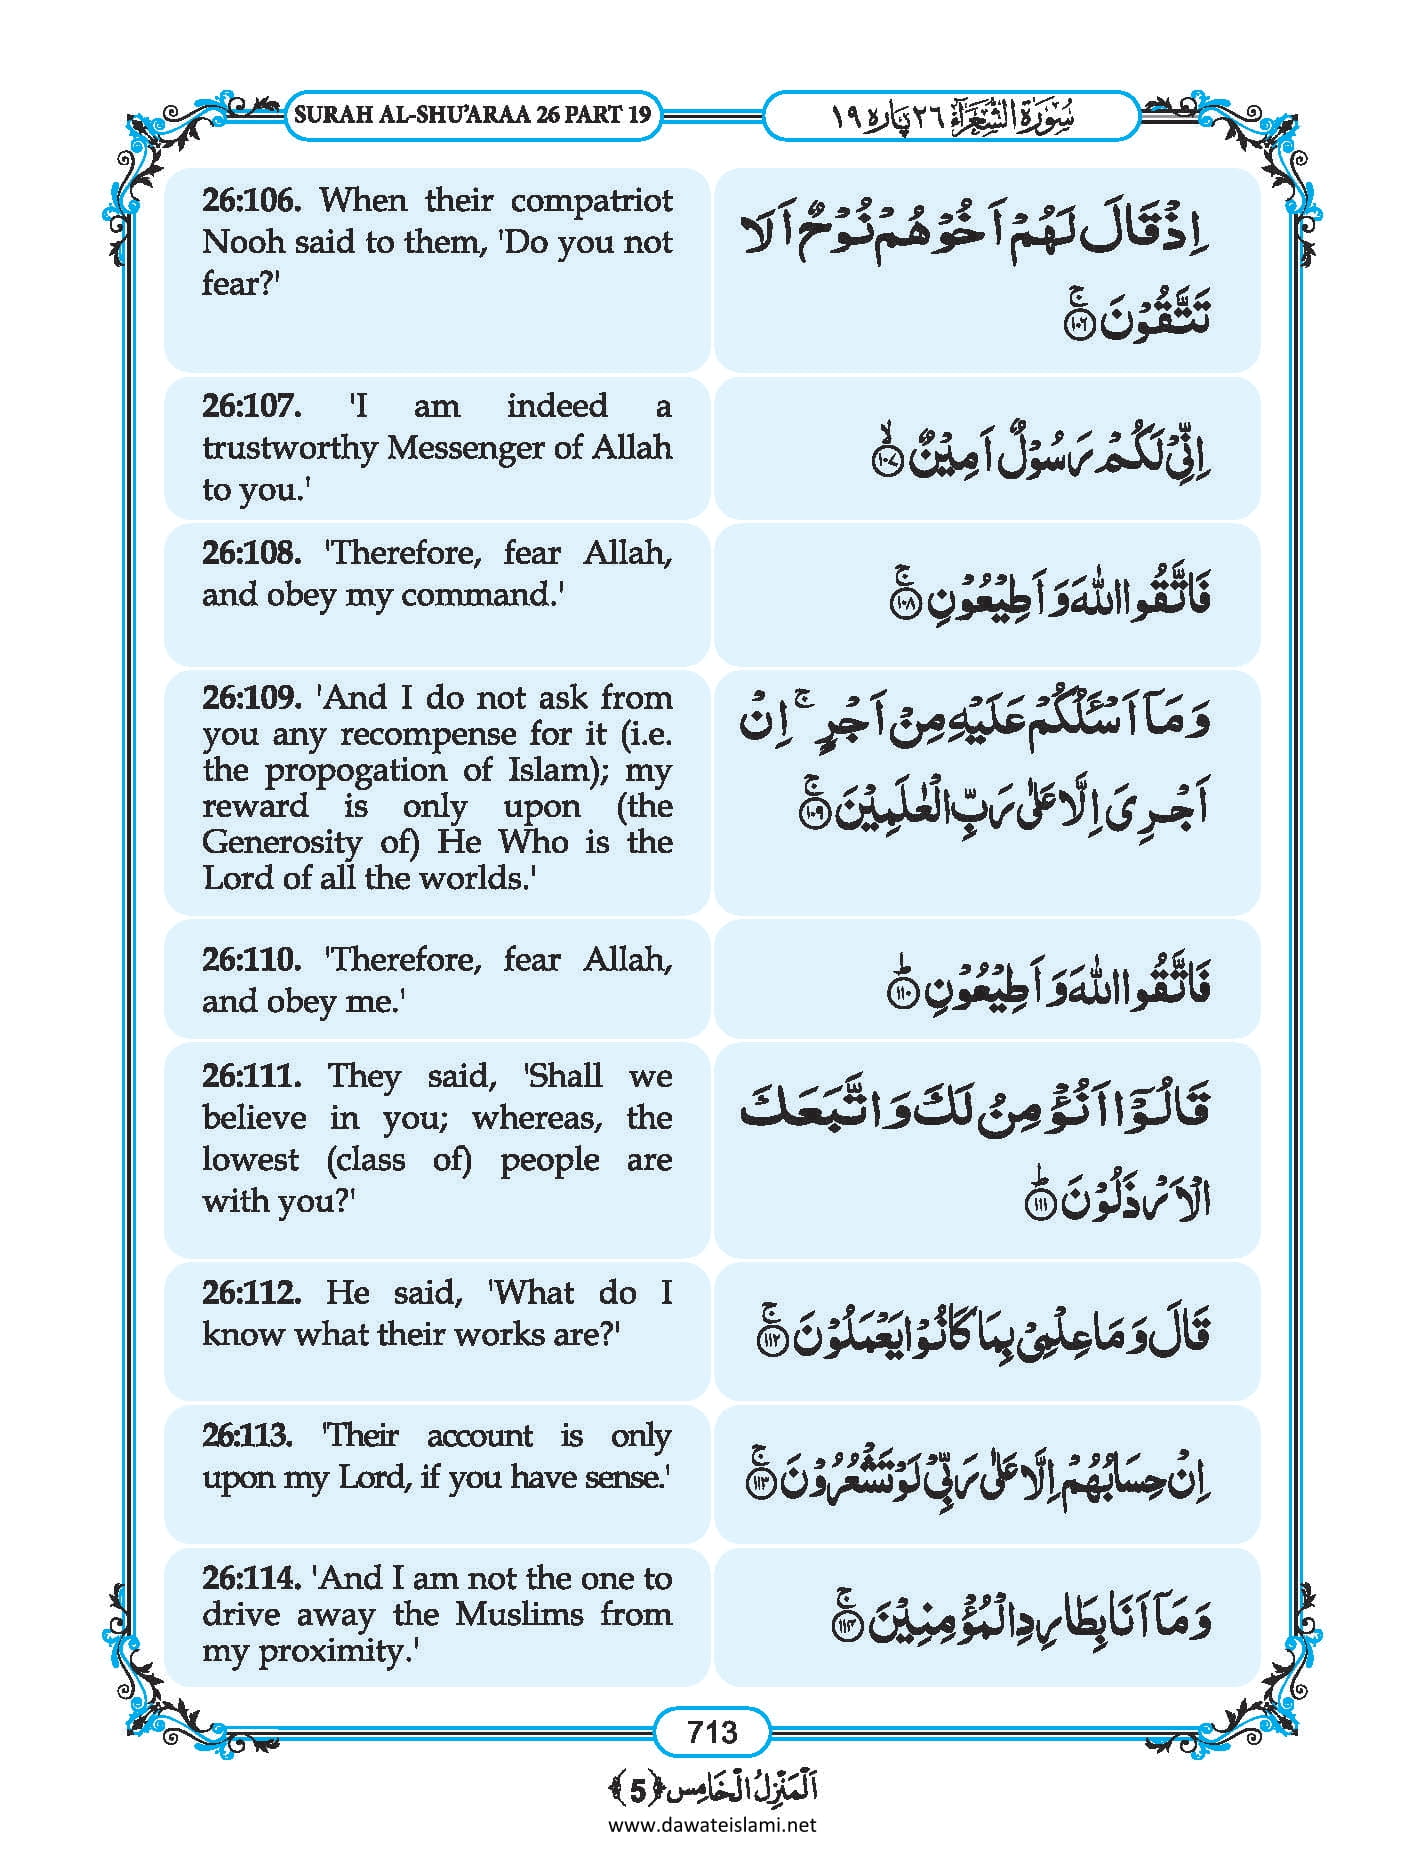 SURAH AL-SHU'ARAA 26 PART 19
سُوۡرَةُ الشُّعَرَآءِ ٢٦ پَارہ ١٩
26:106. When their compatriot
Nooh said to them, 'Do you not
fear?'
اِذۡ قَالَ لَهُمۡ اَخُوۡهُمۡ نُوۡحٌ اَلَا
تَتَّقُوۡنَ ۚ﴿١٠٦﴾
26:107. 'I am indeed a
trustworthy Messenger of Allah
to you.'
اِنِّىۡ لَكُمۡ رَسُوۡلٌ اَمِيۡنٌ ۙ﴿١٠٧﴾
26:108. 'Therefore, fear Allah,
and obey my command.'
فَاتَّقُوا اللّٰهَ وَ اَطِيۡعُوۡنِ ۚ﴿١٠٨﴾
26:109. 'And I do not ask from
you any recompense for it (i.e.
the propogation of Islam); my
reward is only upon (the
Generosity of) He Who is the
Lord of all the worlds.'
وَ مَاۤ اَسۡـَٔلُكُمۡ عَلَيۡهِ مِنۡ اَجۡرٍ ۚ اِنۡ
اَجۡرِىَ اِلَّا عَلٰى رَبِّ الۡعٰلَمِيۡنَ ۚ﴿١٠٩﴾
26:110. 'Therefore, fear Allah,
and obey me.'
فَاتَّقُوا اللّٰهَ وَ اَطِيۡعُوۡنِ ؕ﴿١١٠﴾
26:111. They said, 'Shall we
believe in you; whereas, the
lowest (class of) people are
with you?'
قَالُوۡۤا اَنُؤۡمِنُ لَكَ وَ اتَّبَعَكَ
الۡاَرۡذَلُوۡنَ ؕ﴿١١١﴾
26:112. He said, 'What do I
know what their works are?'
قَالَ وَ مَا عِلۡمِىۡ بِمَا كَانُوۡا يَعۡمَلُوۡنَ ۚ﴿١١٢﴾
26:113. 'Their account is only
upon my Lord, if you have sense.'
اِنۡ حِسَابُهُمۡ اِلَّا عَلٰى رَبِّىۡ لَوۡ تَشۡعُرُوۡنَ ۚ﴿١١٣﴾
26:114. 'And I am not the one to
drive away the Muslims from
my proximity.'
وَ مَاۤ اَنَا بِطَارِدِ الۡمُؤۡمِنِيۡنَ ۚ﴿١١٤﴾
713
اَلۡمَنۡزِلُ الۡخَامِس ﴿5﴾
www.dawateislami.net